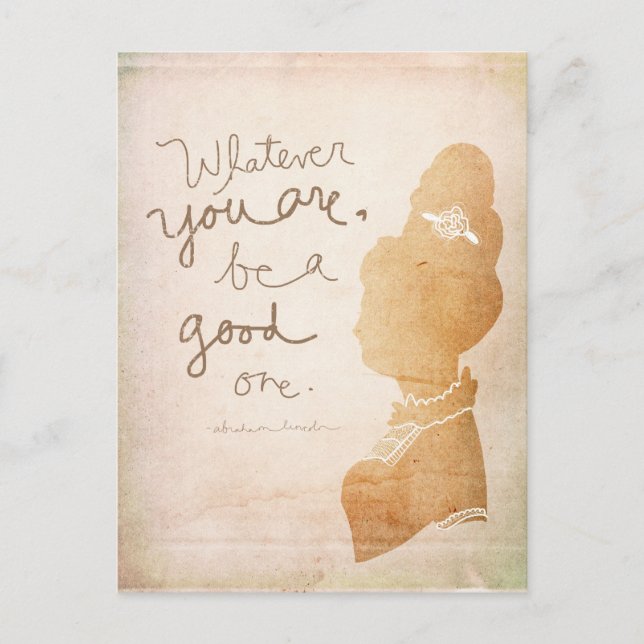 Whatever
you are,
be a
good
one.
-abraham lincoln